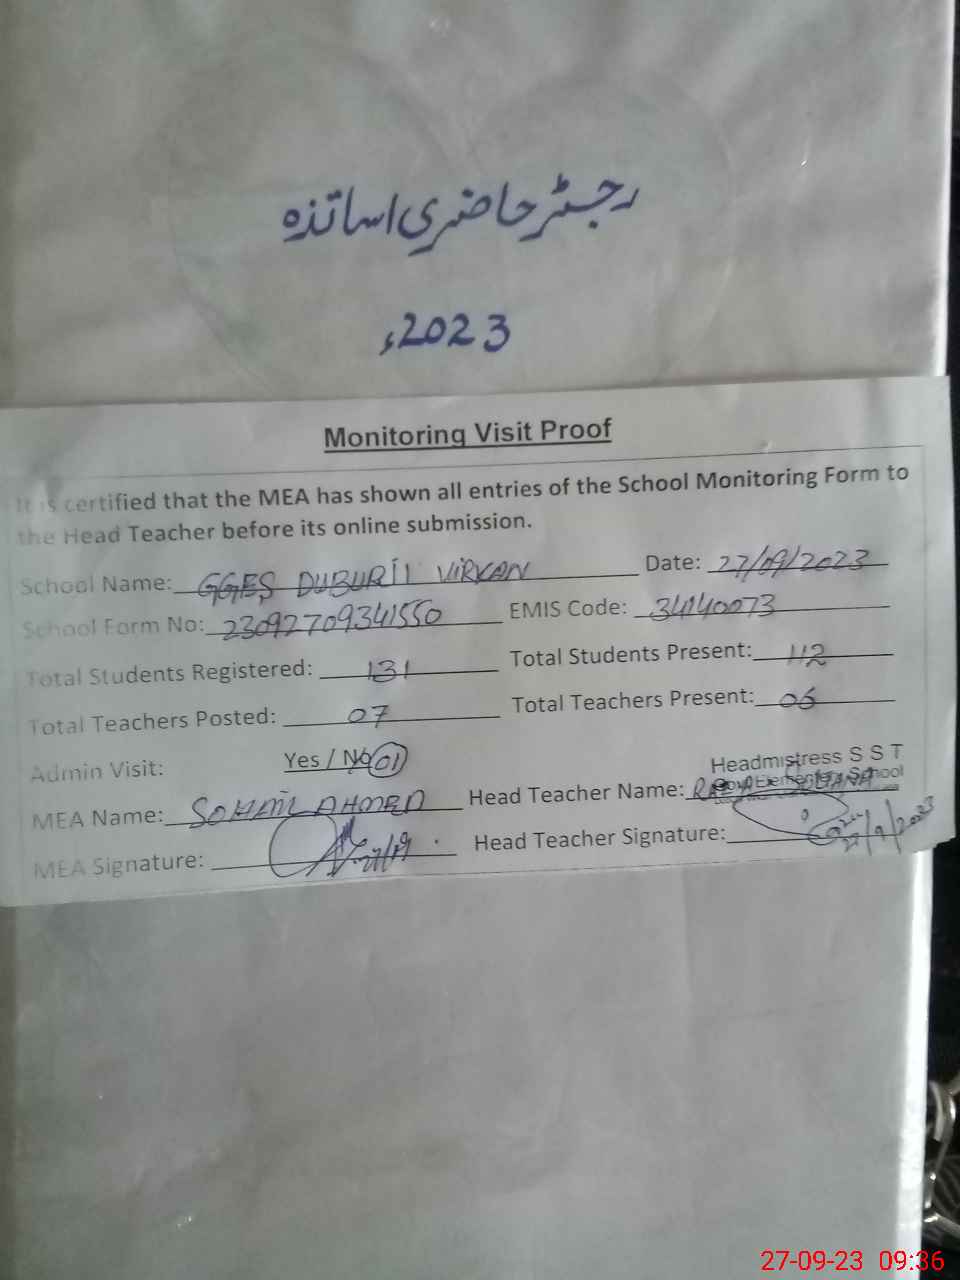 رجسٹر حاضری اساتذہ
2023ء
Monitoring Visit Proof
It is certified that the MEA has shown all entries of the School Monitoring Form to
the Head Teacher before its online submission.
School Name: GGES DUBURJI VIRKAN Date: 27/09/2023
School Form No: 23092709341550 EMIS Code: 34140073
Total Students Registered: 131 Total Students Present: 112
Total Teachers Posted: 07 Total Teachers Present: 06
Admin Visit: Yes / No 01
Headmistress S S T
Elementary School
MEA Name: SOHAIL AHMED Head Teacher Name: RABIA SULTANA
MEA Signature: 27/09 Head Teacher Signature: 27/9/2023
27-09-23 09:36